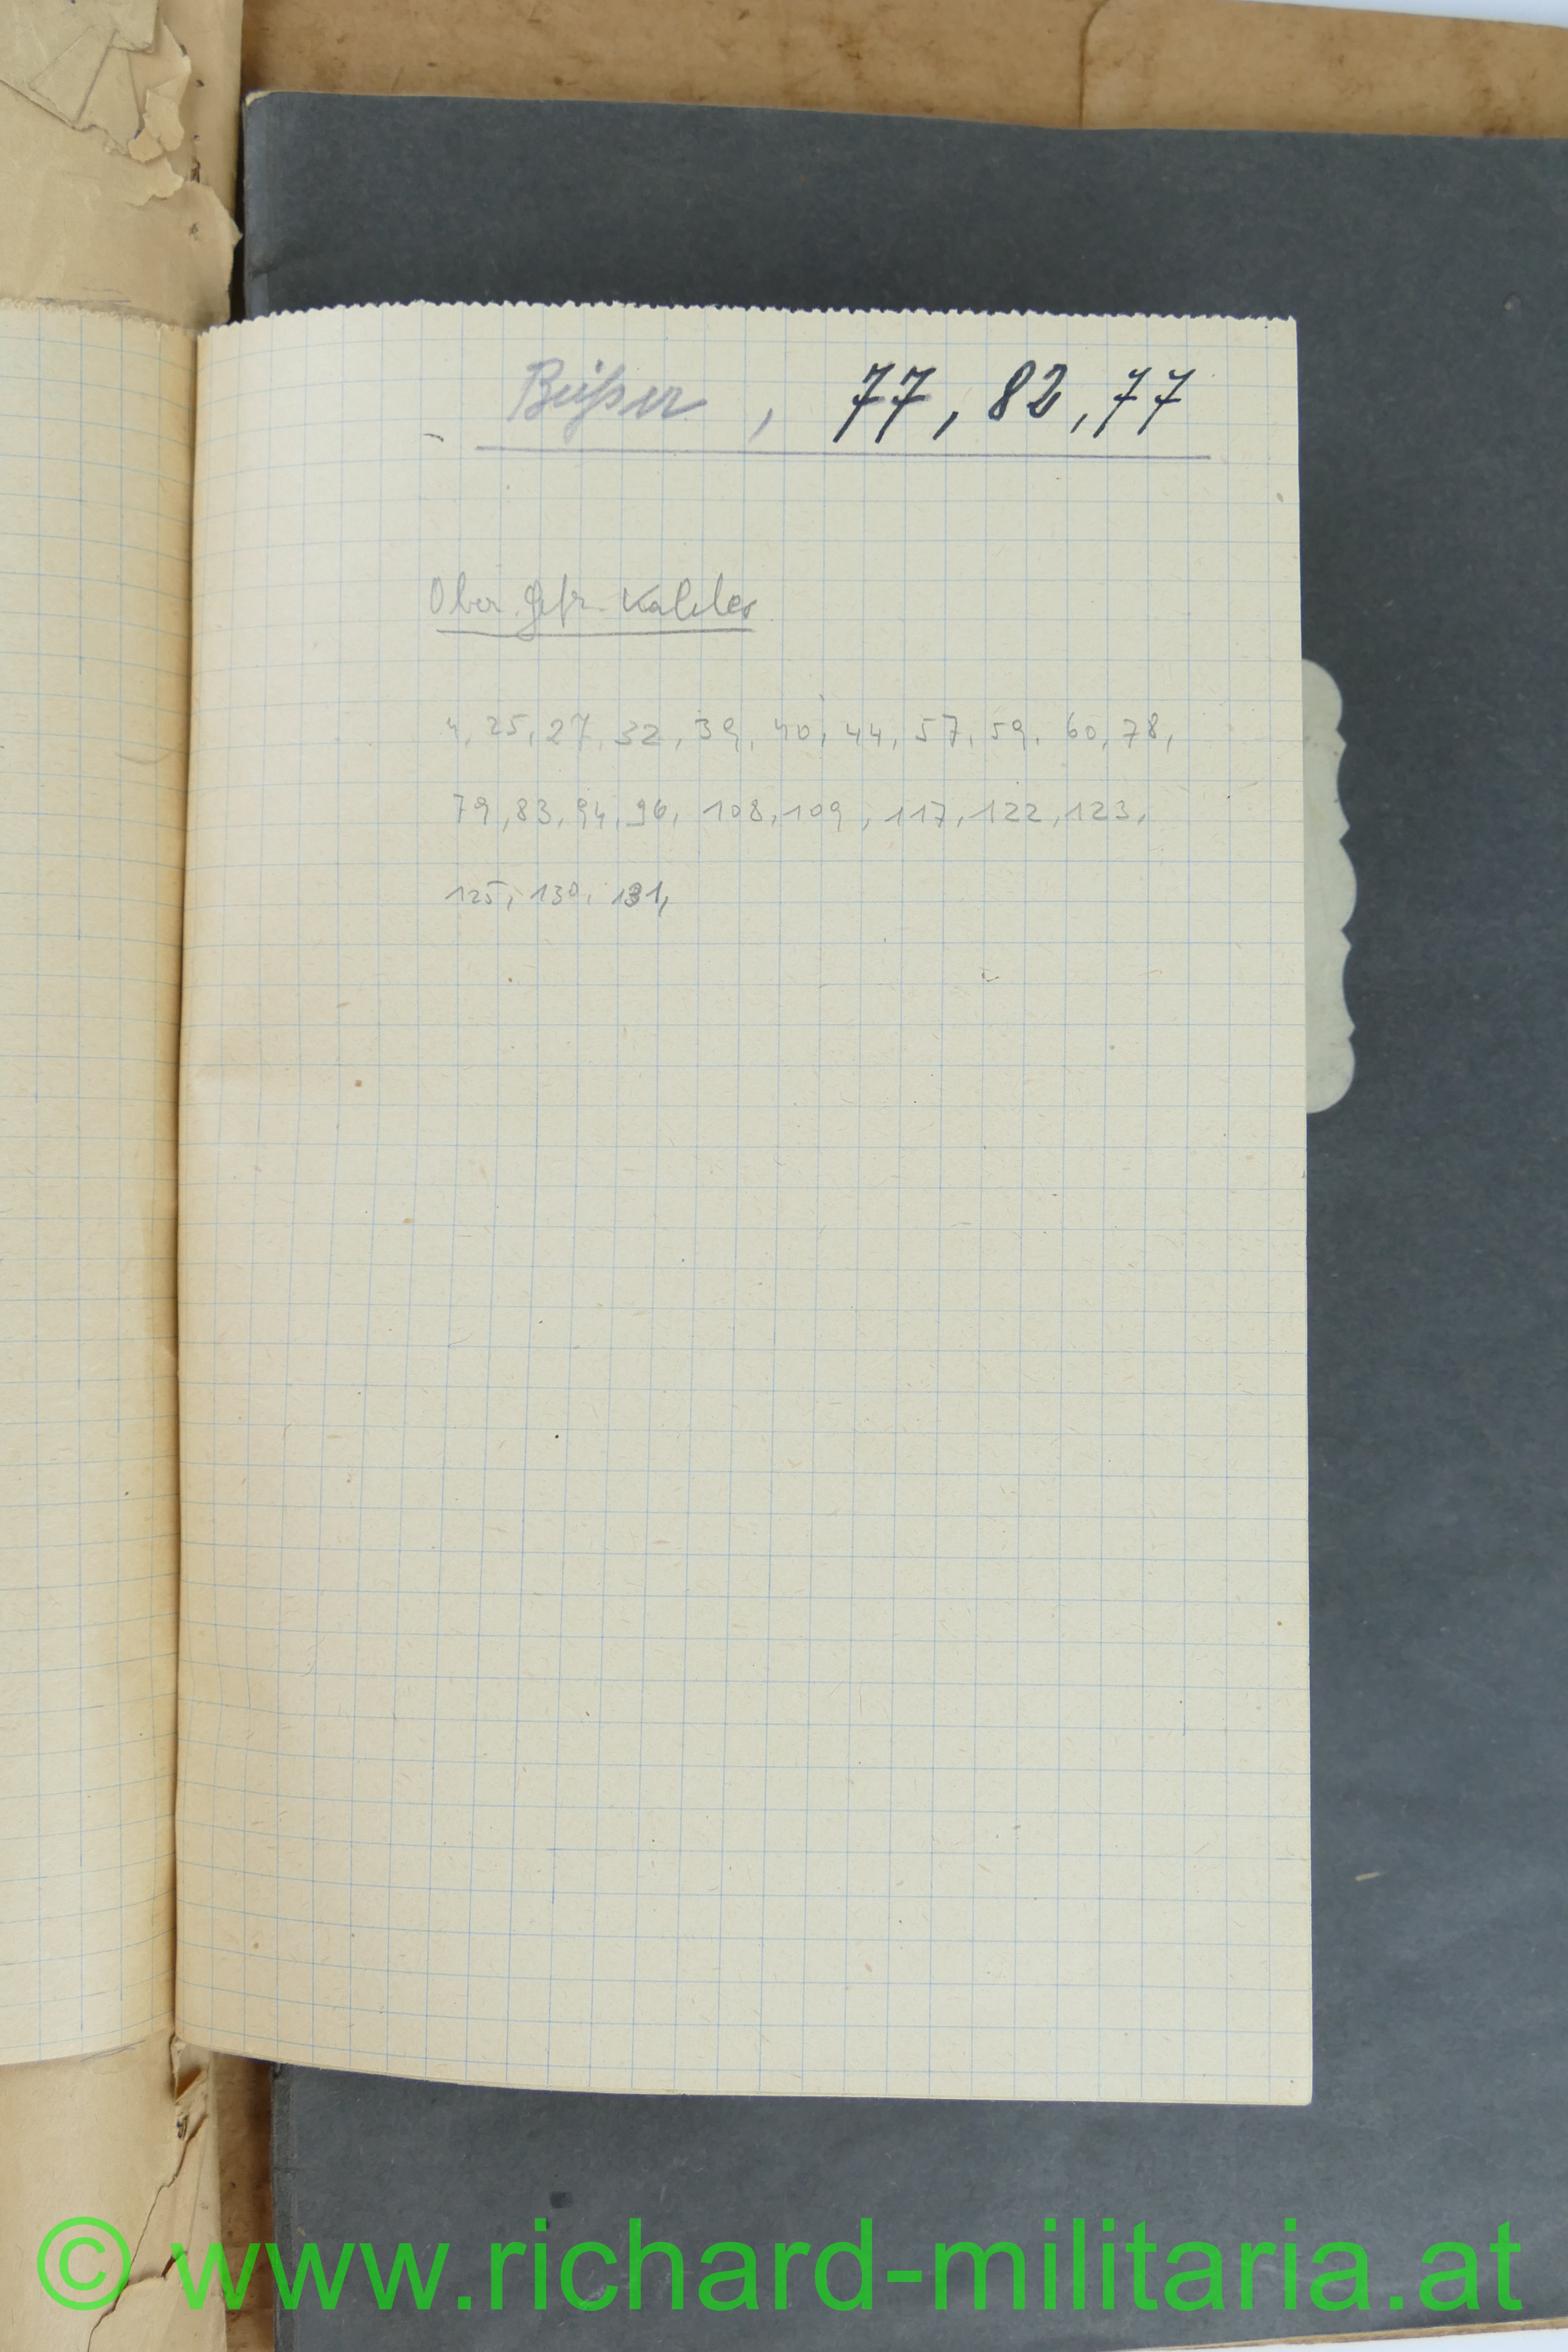 Beißer, 77, 82, 77
Ober. Gefr. Kahler
4, 25, 27, 32, 39, 40, 44, 57, 59, 60, 78,
79, 83, 94, 96, 108, 109, 117, 122, 123,
125, 130, 131,
© www.richard-militaria.at